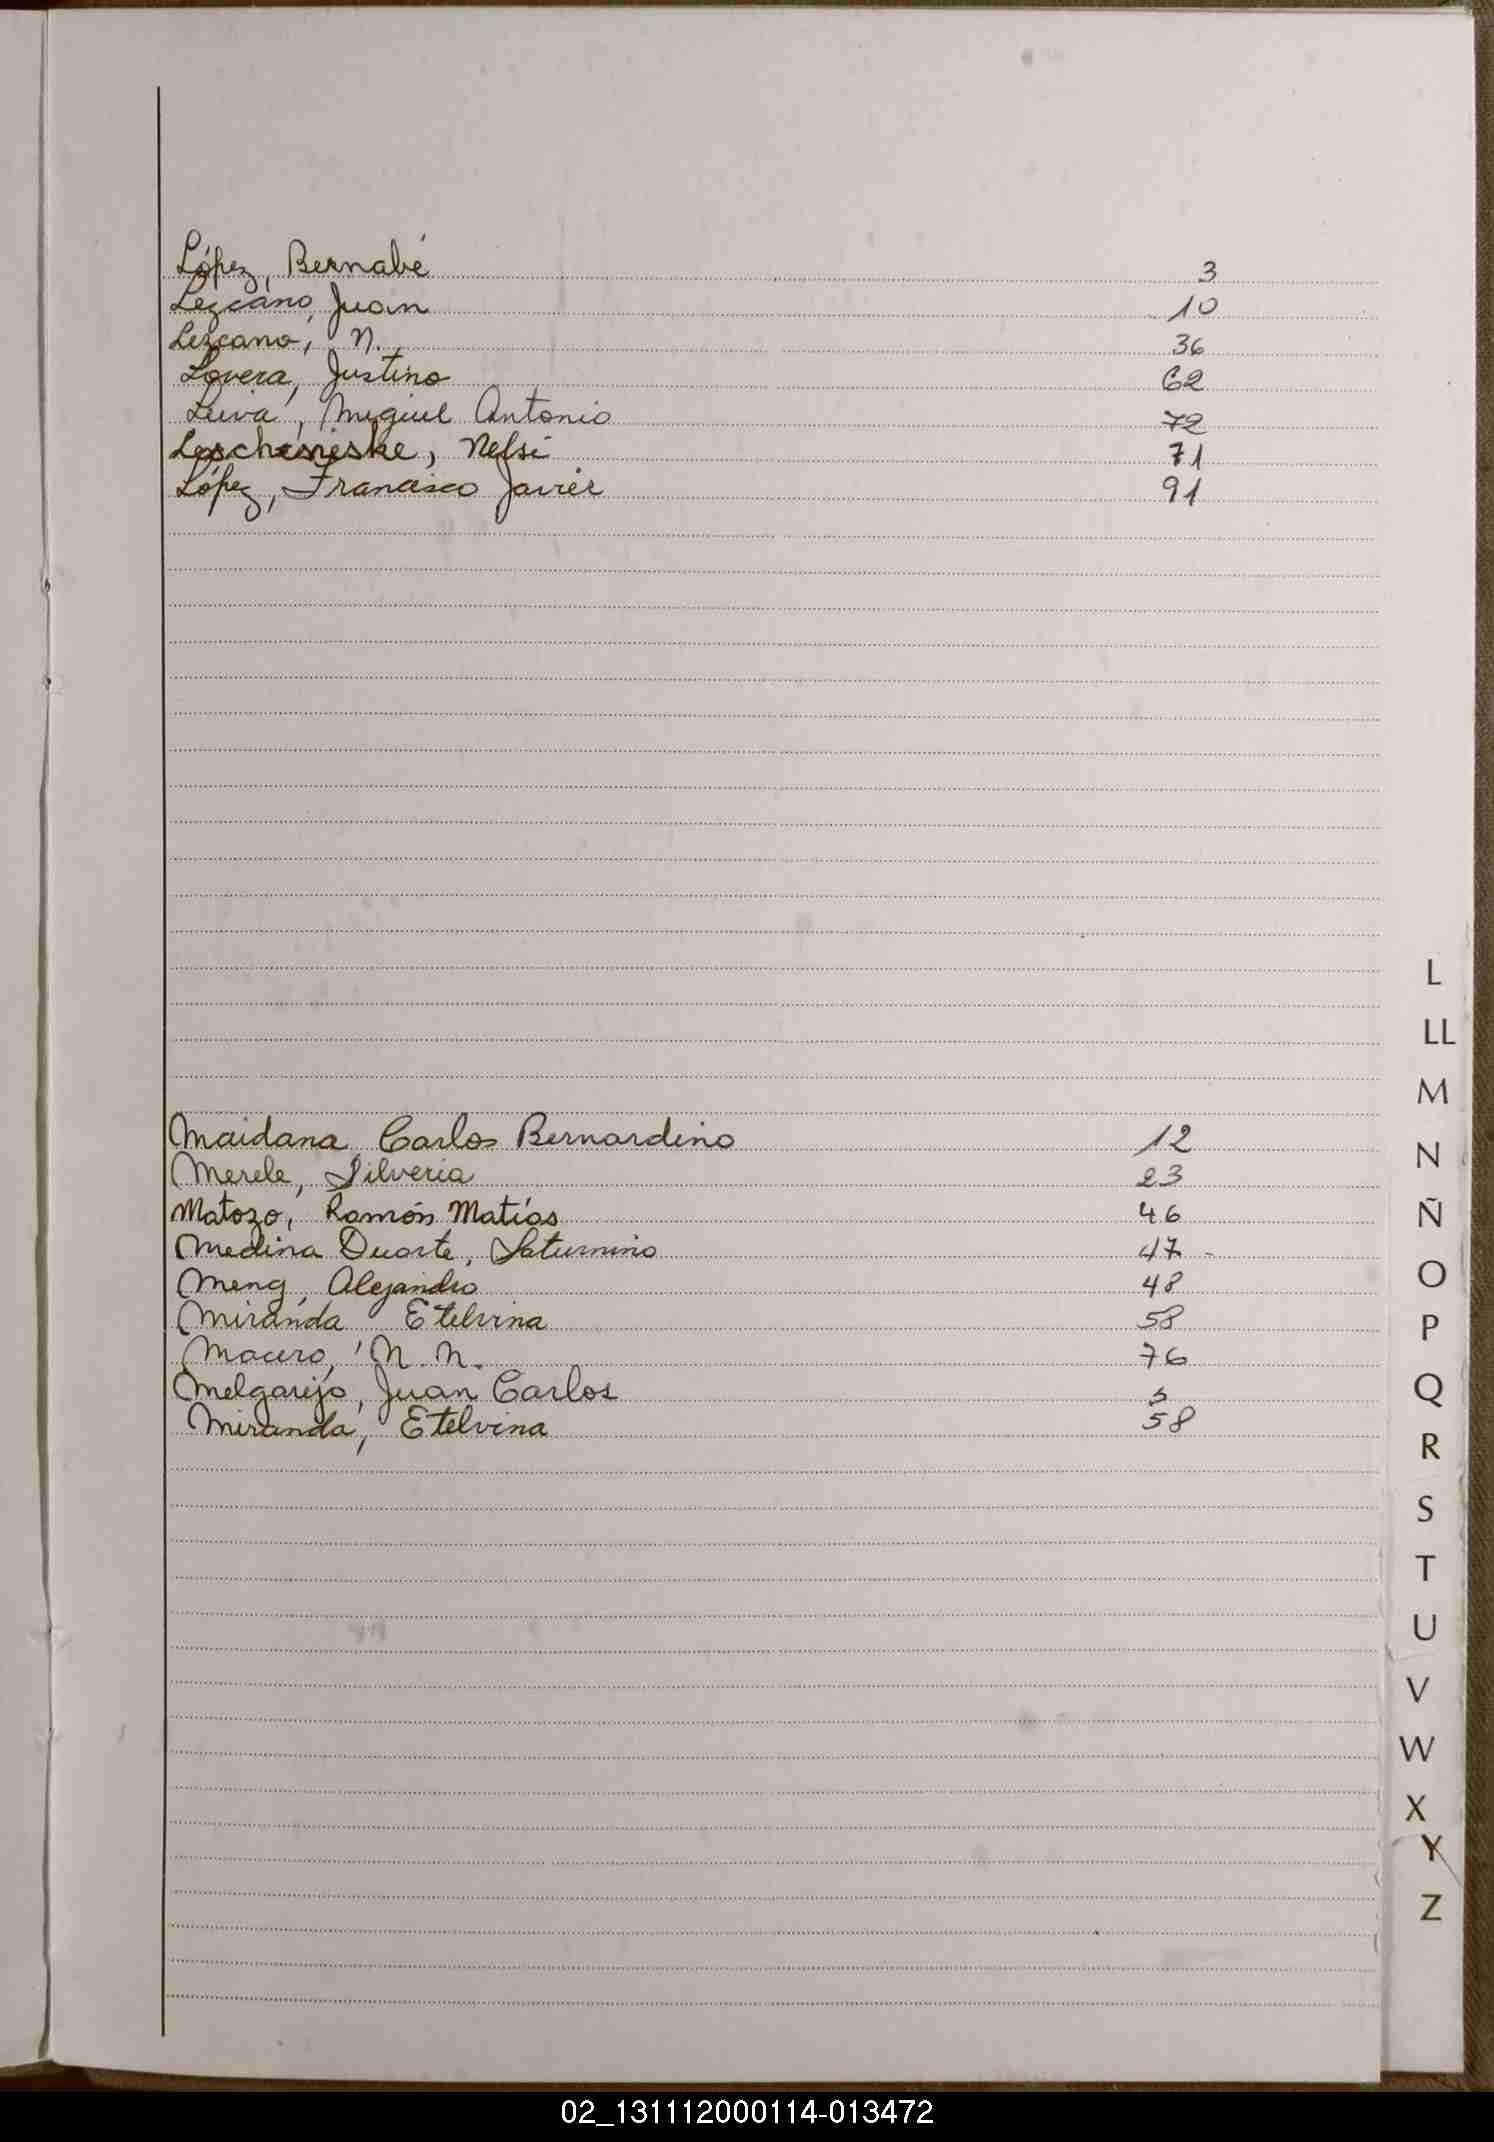 López, Bernabé 3
Lezcano, Juan 10
Lezcano, N. 36
Lovera, Justino 62
Leiva, Miguel Antonio 72
Nelsi 71
López, Francisco Javier 91
Maidana, Carlos Bernardino 12
Merele, Silveria 23
Matozo, Ramón Matías 46
Medina Duarte, Saturnino 47
Meng, Alejandro 48
Miranda Etelvina 58
N. N. 76
Melgarejo, Juan Carlos
Miranda, Etelvina 58
L
LL
M
N
Ñ
O
P
Q
R
S
T
U
V
W
X
Y
Z
02_131112000114-013472